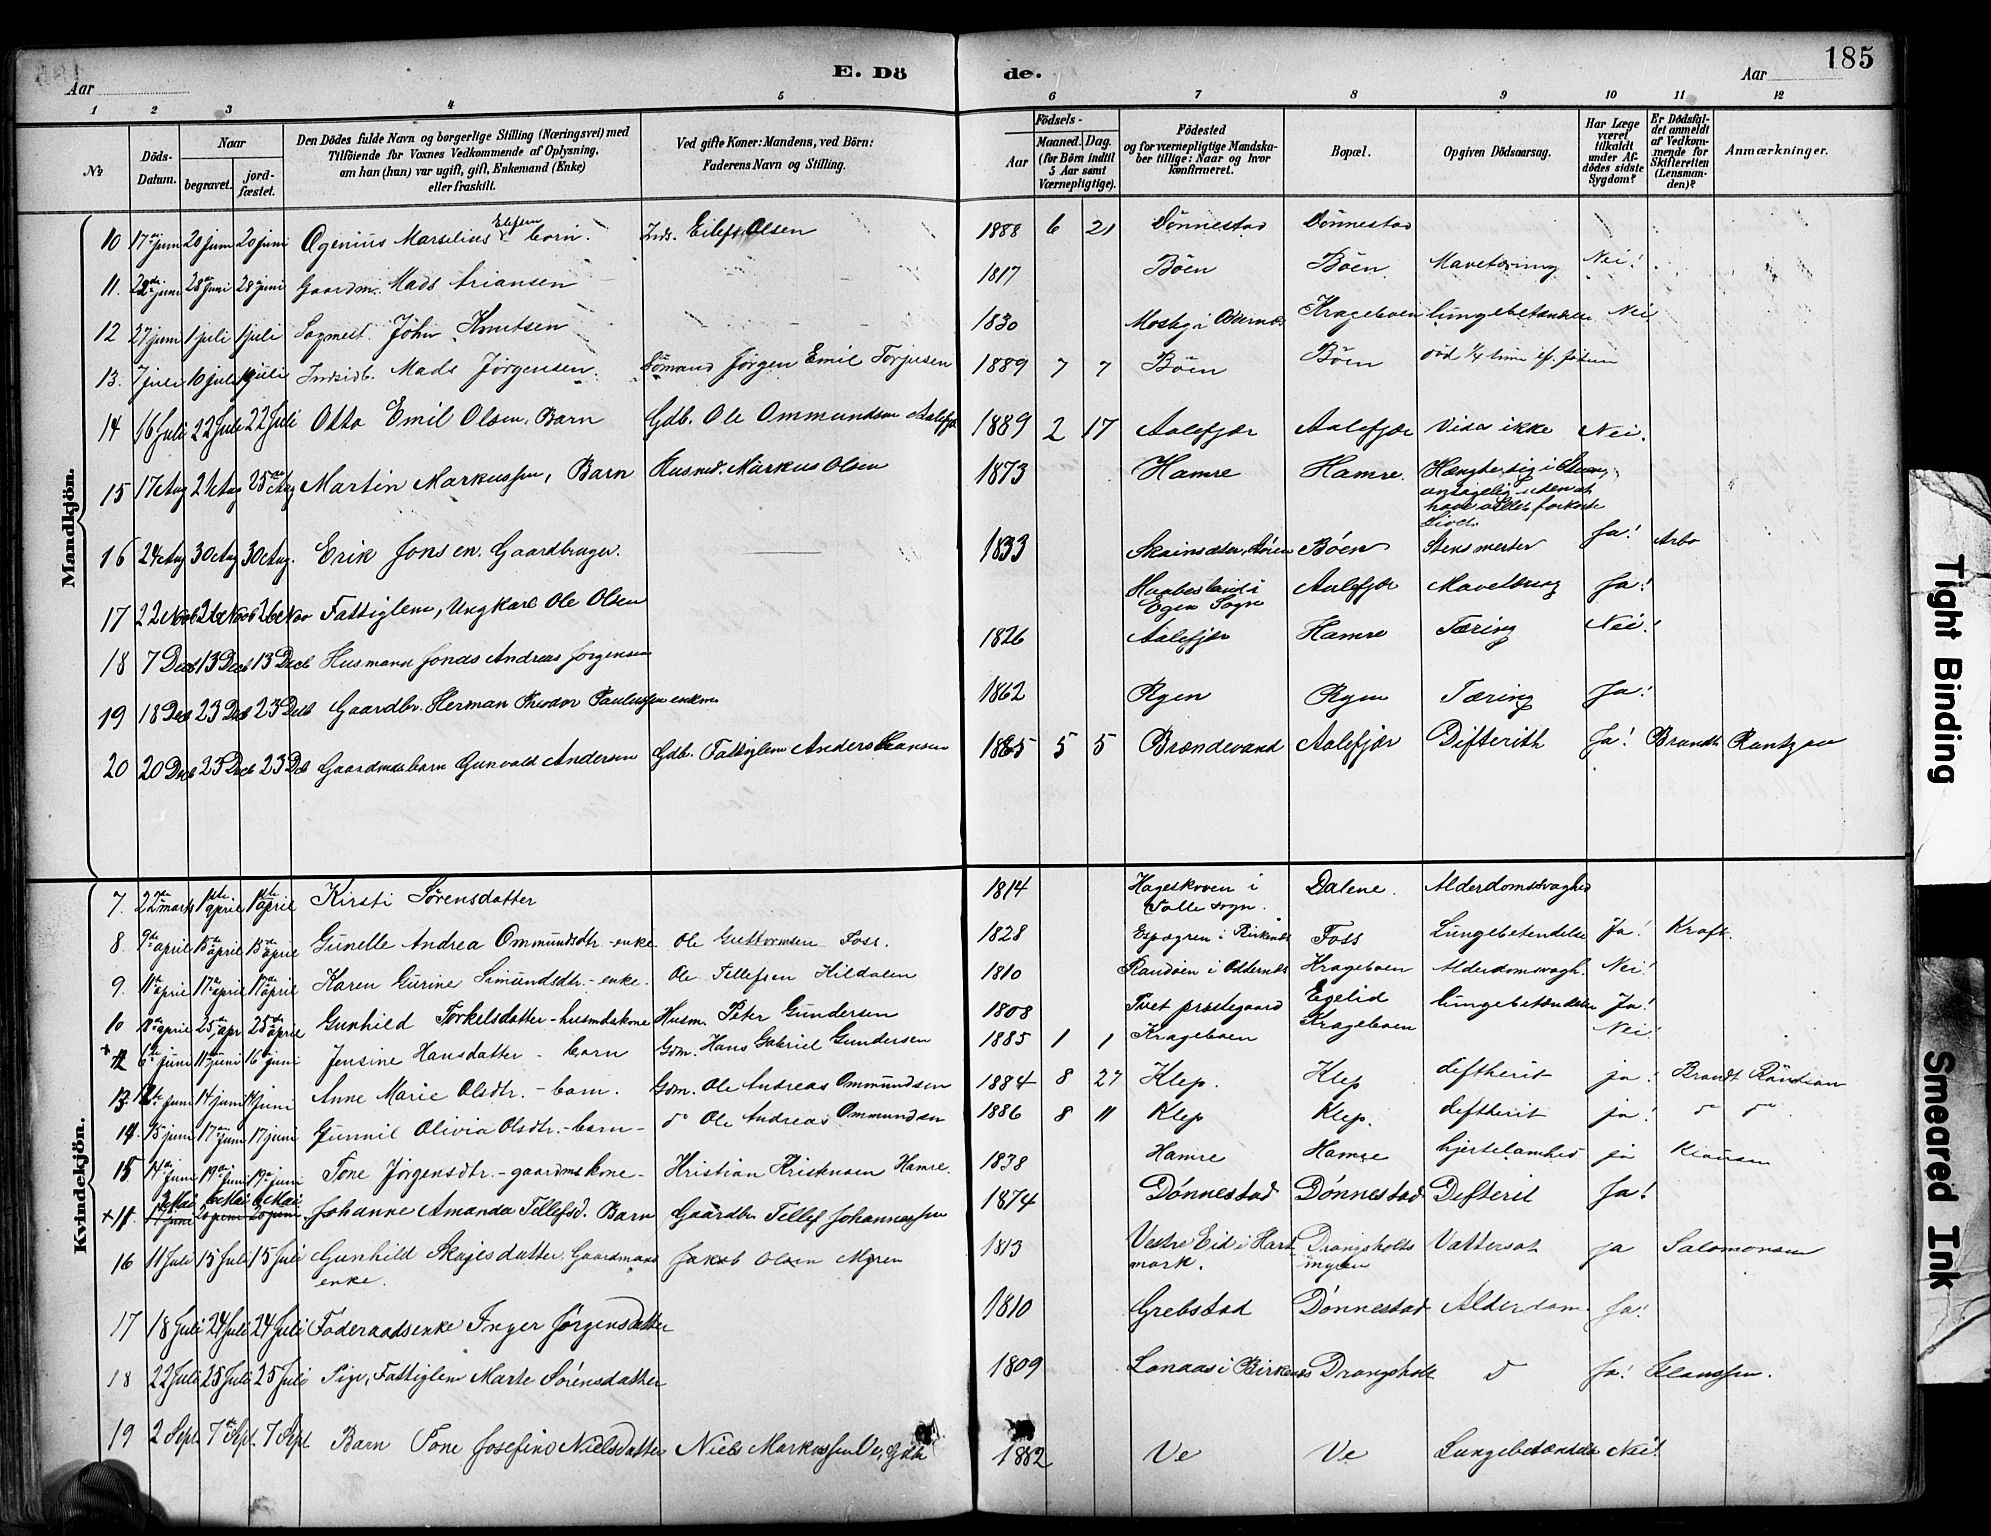 185
E. Dö de.
Aar Aar
1 2 3 4 5 6 7 8 9 10 11 12
No
Döds-Datum.
Naar
begravet.
jord-fæstet.
Den Dödes fulde Navn og borgerlige Stilling (Næringsvei) med
Tilföiende for Voxnes Vedkommende af Oplysning,
om han (hun) var ugift, gift, Enkemand (Enke)
eller fraskilt.
Ved gifte Koner: Mandens, ved Börn:
Faderens Navn og Stilling.
Födsels-
Aar
Maaned. Dag.
(for Börn indtil
5 Aar samt
Værnepligtige).
Födested
og for værnepligtige Mandska-
ber tillige: Naar og hvor
konfirmeret.
Bopæl.
Opgiven Dödsaarsag.
Har Læge
været
tilkaldt
under Af-
dödes sidste
Sygdom?
Er Dödsfal-
det anmeldt
af Vedkom-
mende for
Skifteretten
(Lensman-
den)?
Anmærkninger.
Mandkjön.
10 17de juni 20 juni 20 juni Ogenius Marselius Elefsen barn. Inds. Eilef Olsen 1888 6 21 Dönnestad Dönnestad
11. 22de juni 28de juni 28 juni Gaardm. Mads Ariansen 1817 Böen Böen Mavetæring Nei!
12 27 juni 1 juli 1 juli Sagmest. John Knutsen 1830 Mosby i Oddernes Krageboen lungebetændelse Nei
13. 7 juli 10 juli 10 juli Indsidb. Mads Jörgensen Sömand Jörgen Emil Torjusen 1889 7 7 Böen Böen död 1/4 time ef. föden
14 16 Juli 22 Juli 22 Juli Otto Emil Olsen, Barn Gdb. Ole Ommundsen Aalefjær 1889 2 17 Aalefjær Aalefjær Vides ikke Nei.
15 17 Aug 24 Aug 25de Aug Martin Markussen, Barn Husmd. Markus Olsen 1873 Hamre Hamre Hængte sig i
antagelig uden at
have villet forkorte
Livet.
16 24 Aug 30 Aug 30 Aug. Erik Jonsen. Gaardbruger. 1833 Böen Ja! Arbo
17 22 Nov 26 Nov 26 Nov Fattiglem, Ungkarl Ole Olsen Haabesland i
Ogen Sogn Aalefjær Mavetæring Ja!
18 7 Decb 13 Decb 13 Decb Husmand Jonas Andreas Jörgensen 1826 Aalefjær Hamre Tæring Nei!
19 18 Dec 23 Dec 23 Decb Gaardbr. Herman Theodor Paulussen enkm 1862 Ryen Ryen Tæring Ja!
20 20 Decb 23 Decb 23 Dcb Gaardmandsbarn Gunvald Andersen Gdb. Fattiglem Anders Hansen 1885 5 5 Brændevand Aalefjær Difterith Ja! Brandt Rantzau
Kvindekjön.
7. 22de marts 1ste april 1ste april Kirsti Sörensdatter 1814 Hageskoven i
Tolle sogn. Dalene. Alderdomssvaghed
8. 9de april 15de april 15de april Gunelle Andrea Ommundsdtr. - enke Ole Guttormsen Foss. 1828 Espegren i Birkenes Foss Lungebetendelse Ja! Kraft.
9. 11te april 17de april 17de april Karen Gurine Simundsdtr. - enke. Ole Tellefsen Kildalen 1810 Randöen i Oddernes Krageboen Alderdomsvagh. Nei!
10 18de april 25de apr 25de april Gunhild Torkelsdatter - husmdskone Husm. Peter Gundersen 1808 Tvet præstegaard Egelid lungebetændelse Ja!
+ 12 6te juni 11te juni 16 juni Jensine Hansdatter - barn Gdm. Hans Gabriel Gundersen 1885 1 1 Krageboen Krageboen Nei!
13. 12te juni 14 juni 14 juni Anne Marie Olsdtr. - barn. Gdm. Ole Andreas Ommundsen 1884 8 27 Klep. Klep deftherit ja! Brandt
14. 15 juni 17de juni 17 juni Gunnil Olivia Olsdtr. - barn - do Ole Andreas Ommundsen 1886 8 11 Klep Klep. deftherit ja! do do
15 14de juni 19de juni 19de juni Tone Jörgensdtr. - gaardmskone - Kristian Kristensen Hamre. 1838 Hamre Hamre hjertelamhed ja Klausen
+ 11. 3 Mai 6 Mai 6 Mai Johanne Amanda Tellefsd. Barn Gaardbr. Tellef Johannessen 1874 Dönnestad Dönnestad Difterit Ja!
16 11 Juli 15 Juli 15 Juli Gunhild Skajesdatter, Gaardmands
enke. Jakob Olsen Myren 1813 Vestre Eid i Hart
mark. Drangsholts
myren Vattersot ja Salomonsen
17 18 Juli 24 Juli 24 Juli Föderaadsenke Inger Jörgensdatter 1810 Grebstad Dönnestad Alderdom. Ja!
18 22 Juli 25 Juli 25 Juli Pige, Fattiglem Marte Sörensdatter 1809 Lonaas i Birkenes Drangsholt do Ja! Klaussen.
19 2 Sept 7de Sept. 7 Sept Barn Tone Josefine Nielsdatter Niels Markussen Ve, Gdb 1882 Ve Ve Lungebetændelse Nei!
Tight Binding
Smeared Ink